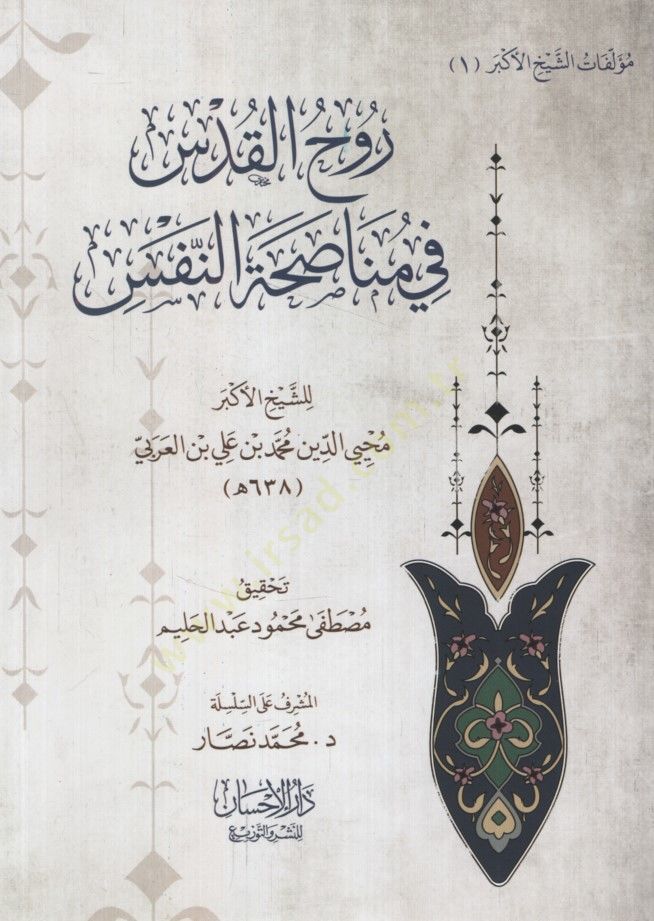 مؤلّفاتُ الشّيخِ الأكبرِ (١)
رُوحُ القُدْسِ
فِي مُنَاصَحَةِ النَّفْسِ
لِلشَّيْخِ الأَكْبَرِ
مُحْيِي الدِّين مُحَمَّد بْن عَلِي بْن العَرَبِيّ
(٦٣٨هـ)
تَحْقِيقُ
مُصْطَفَى مَحْمُود عَبْد الحَلِيم
المُشْرِفُ عَلَى السِّلْسِلَةِ
د. مُحَمَّد نَصَّار
دَارُ الإِحْسَانِ
لِلنَّشْرِ وَالتَّوْزِيعِ
www.irsad.com.tr